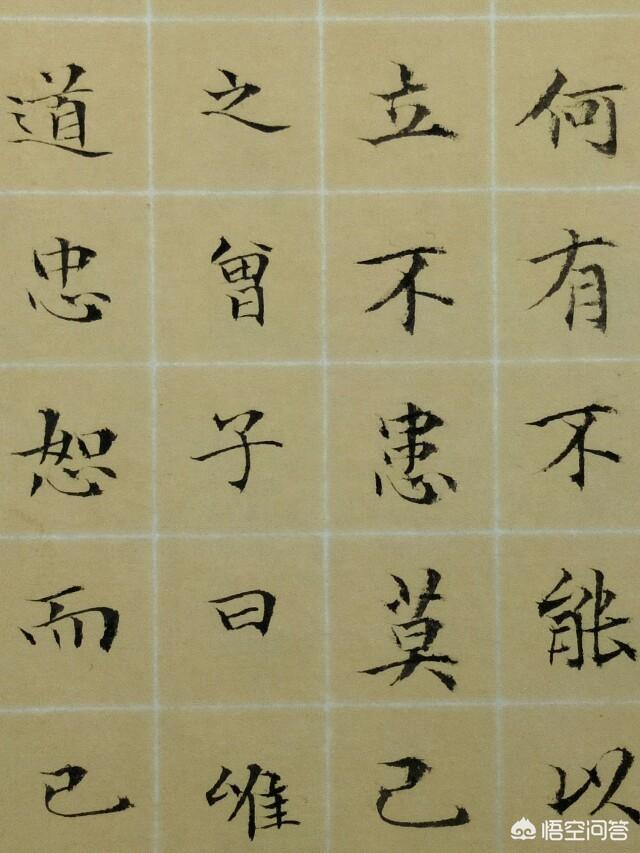 何有不能以
立不患莫己
之曾子曰唯
道忠恕而已
悟空问答